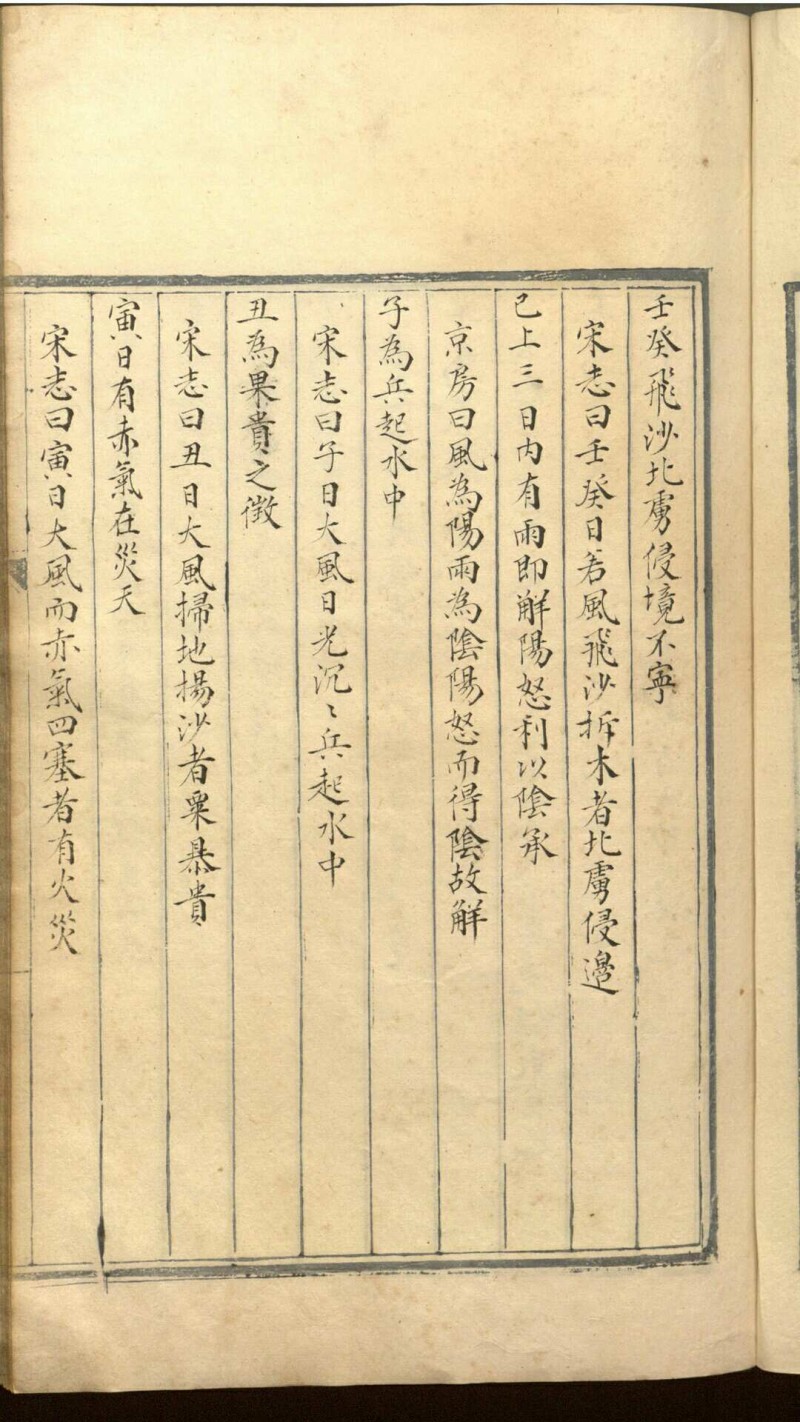 壬癸飛沙北虜侵境不寧
宋志曰壬癸日若風飛沙拆木者北虜侵邊
已上三日内有雨即解陽怒利以陰承
京房曰風為陽雨為陰陽怒而得陰故解
子為兵起水中
宋志曰子日大風日光沉〻兵起水中
丑為果貴之徵
宋志曰丑日大風掃地揚沙者粟暴貴
寅日有赤氣在災天
宋志曰寅日大風而赤氣四塞者有火災